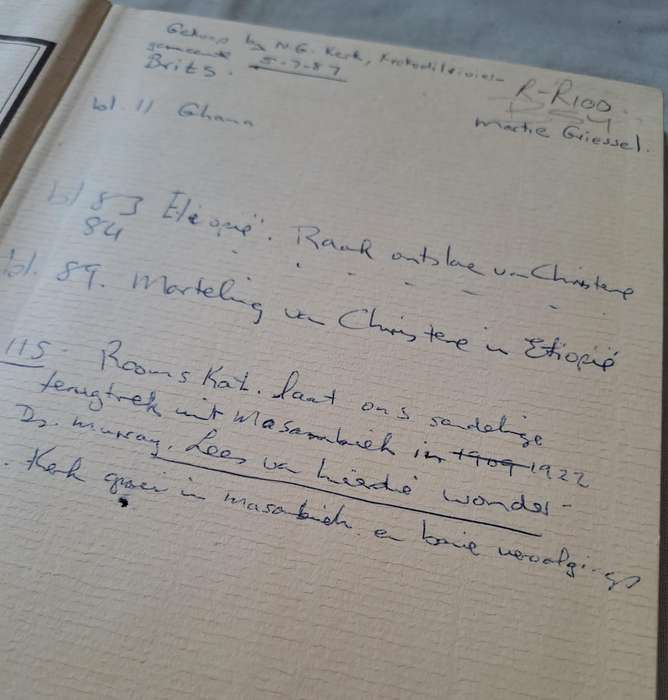 Gekoop by N.G. Kerk, Krokodilrivier-
gemeente 5-7-87
Brits.
R-R100.
Martie Griessel.
bl. 11 Ghana
bl 83 Etiopië. Raak ontslae van Christene
84 " " " " " "
bl. 89. Marteling van Christene in Etiopië
115. Rooms Kat. laat ons sendelinge
terugtrek uit Masambiek in 1909 1922
Ds. Murray. Lees van hierdie wonder-
. Kerk groei in Masambiek en baie vervolgings